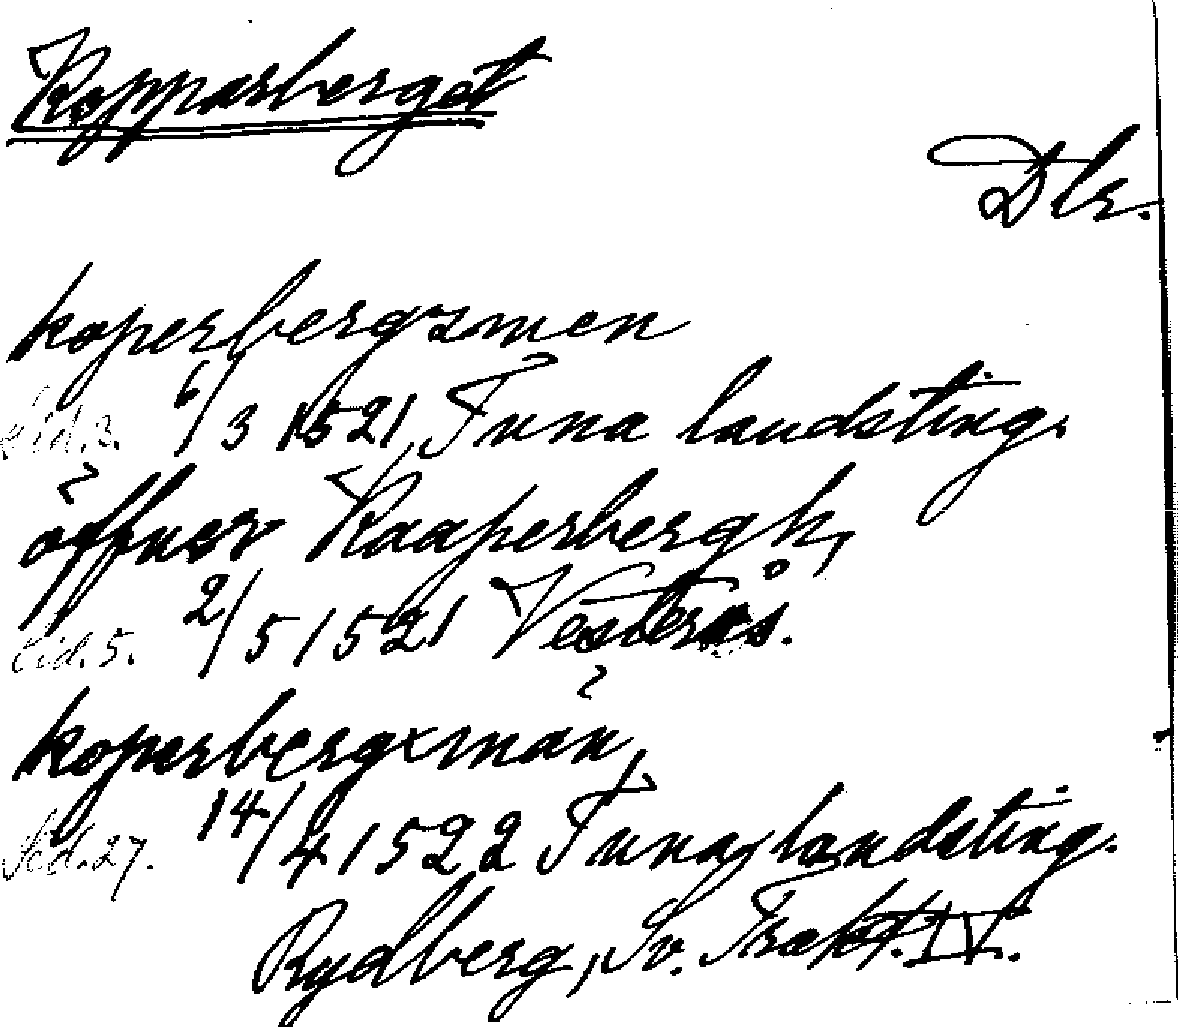 Kopparberget
Dlr.
koperbergxmen
Sid.3. 6/3 1521, Tuna landsting.
öffuer Kaaperbergh,
Sid.5. 2/5 1521 Vesterås.
koperbergxmän,
Sid.27. 14/4 1522 Tuna landsting.
Rydberg, Sv. Trakt. IV.